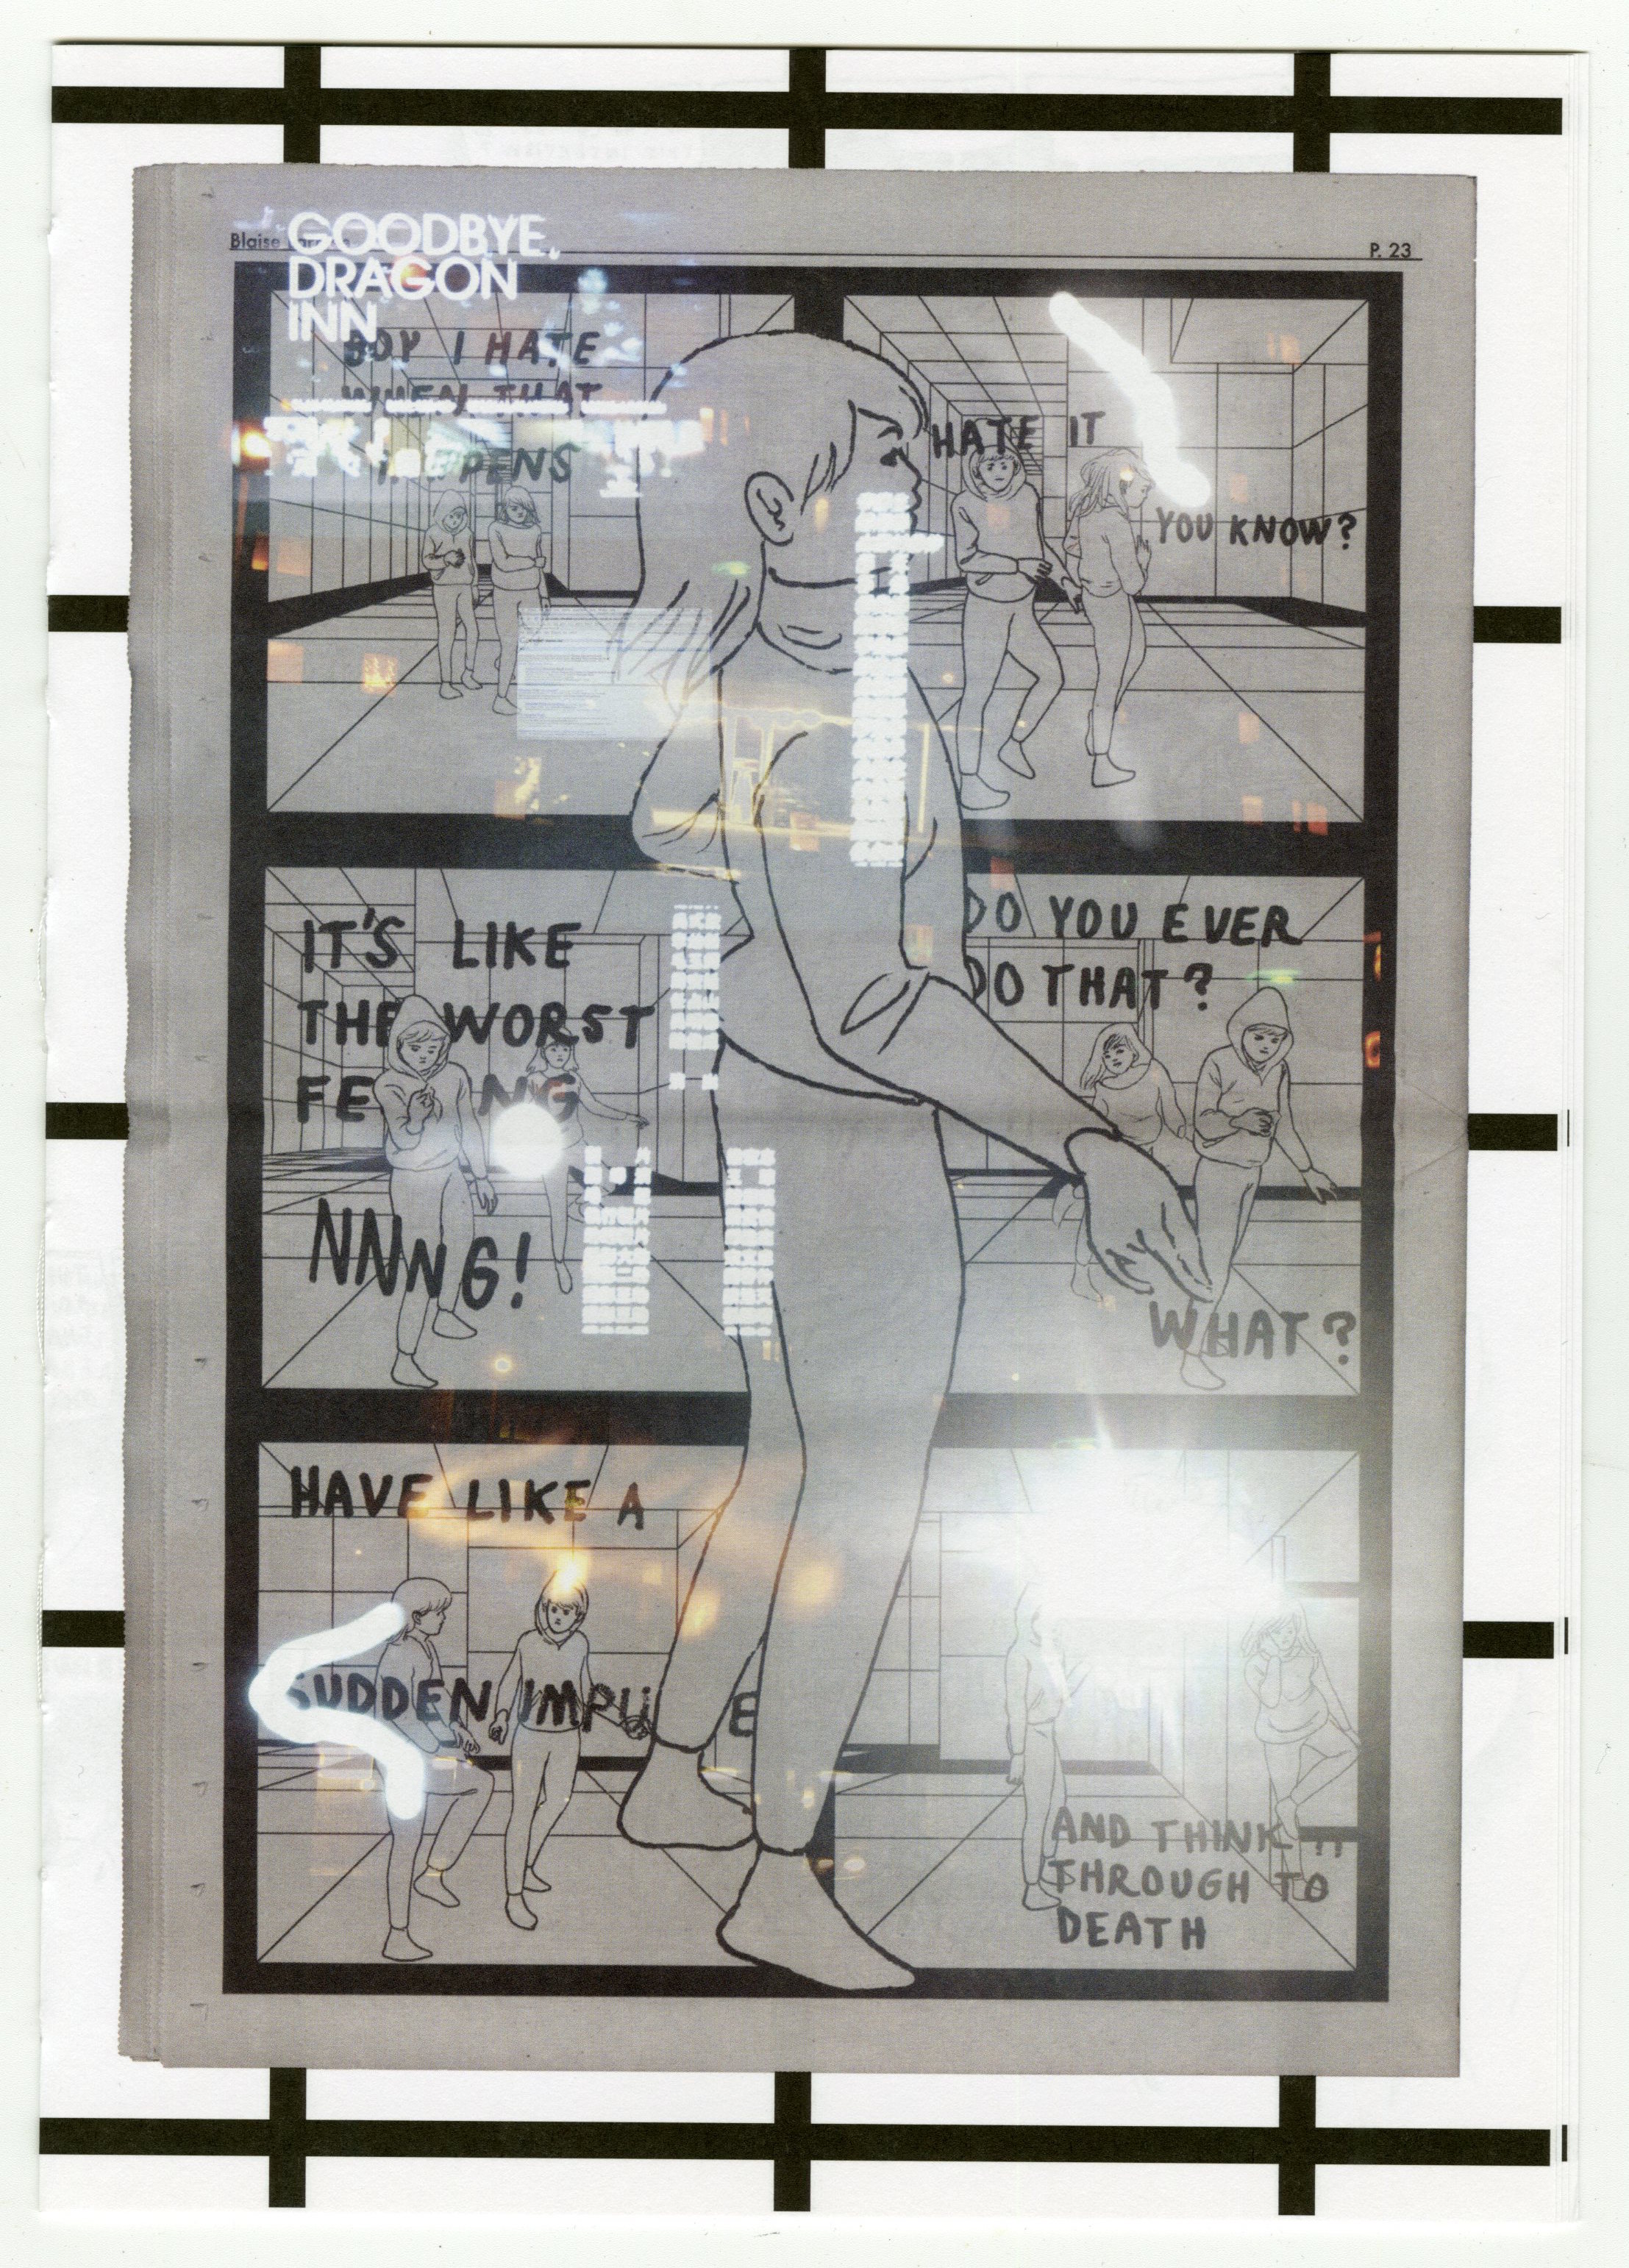 GOODBYE,
DRAGON
INN
Blaise
P. 23
BOY I HATE
WHEN THAT
HAPPENS
HATE IT
YOU KNOW?
IT'S LIKE
THE WORST
FE NG
NNNG!
DO YOU EVER
DO THAT?
WHAT?
HAVE LIKE A
SUDDEN IMPU E
AND THINK IT
THROUGH TO
DEATH